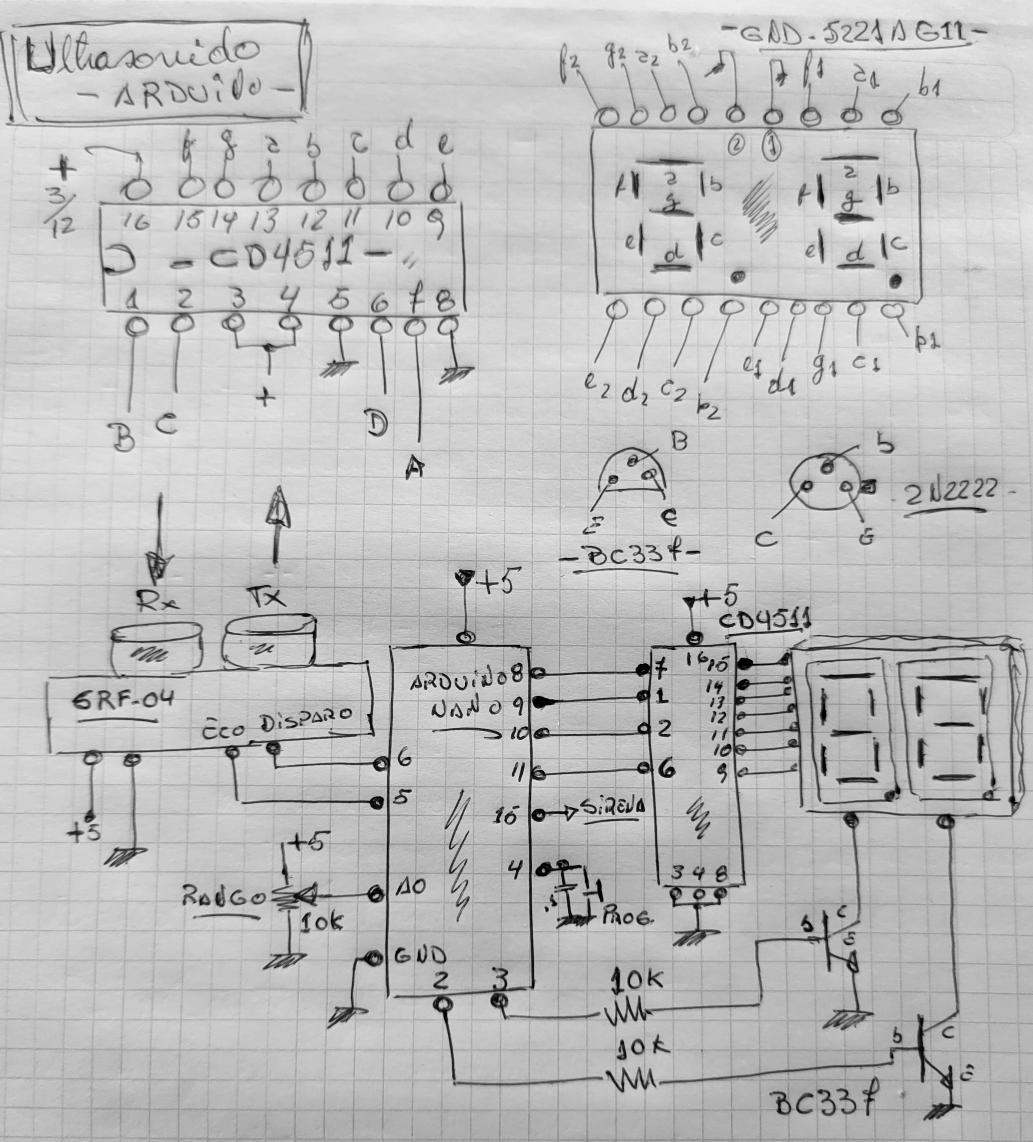 Ultrasonido
- ARDUINO -
+ 3/12
f g a b c d e
16 15 14 13 12 11 10 9
- CD4511 -
1 2 3 4 5 6 7 8
+
B C D A
- GND - 5221AG11 -
f2 g2 a2 b2 f1 a1 b1
2 1
a a
f b f b
g g
e c e c
d d
e2 d2 c2 p2 e1 d1 g1 c1 p1
B
E C
- BC337 -
b
C E
2N2222 -
Rx Tx
SRF-04
ECO DISPARO
+5
+5
ARDUINO
NANO
8
9
10
11
15
SIRENA
4
PROG.
6
5
A0
GND
2 3
+5
RANGO
10K
+5
CD4511
7
1
2
6
16
15
14
13
12
11
10
9
3 4 8
10K
10K
b C E
b C E
BC337